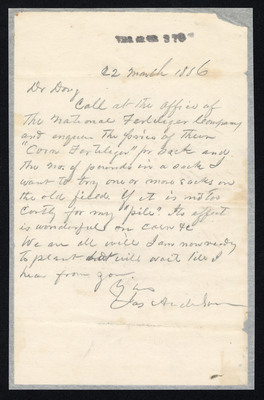 22 March 1886
Dr Dory
Call at the office of
the National Fertilizer Company
and enquire the price of their
"Corn Fertilizer" per sack and
the no. of pounds in a sack I
want to try one or more sacks on
the old field If it is not too
costly for my "pile" Its effect
is wonderful on corn &c
We are all well I am now ready
to plant will wait till I
hear from you
Yrs
Jas Anderson